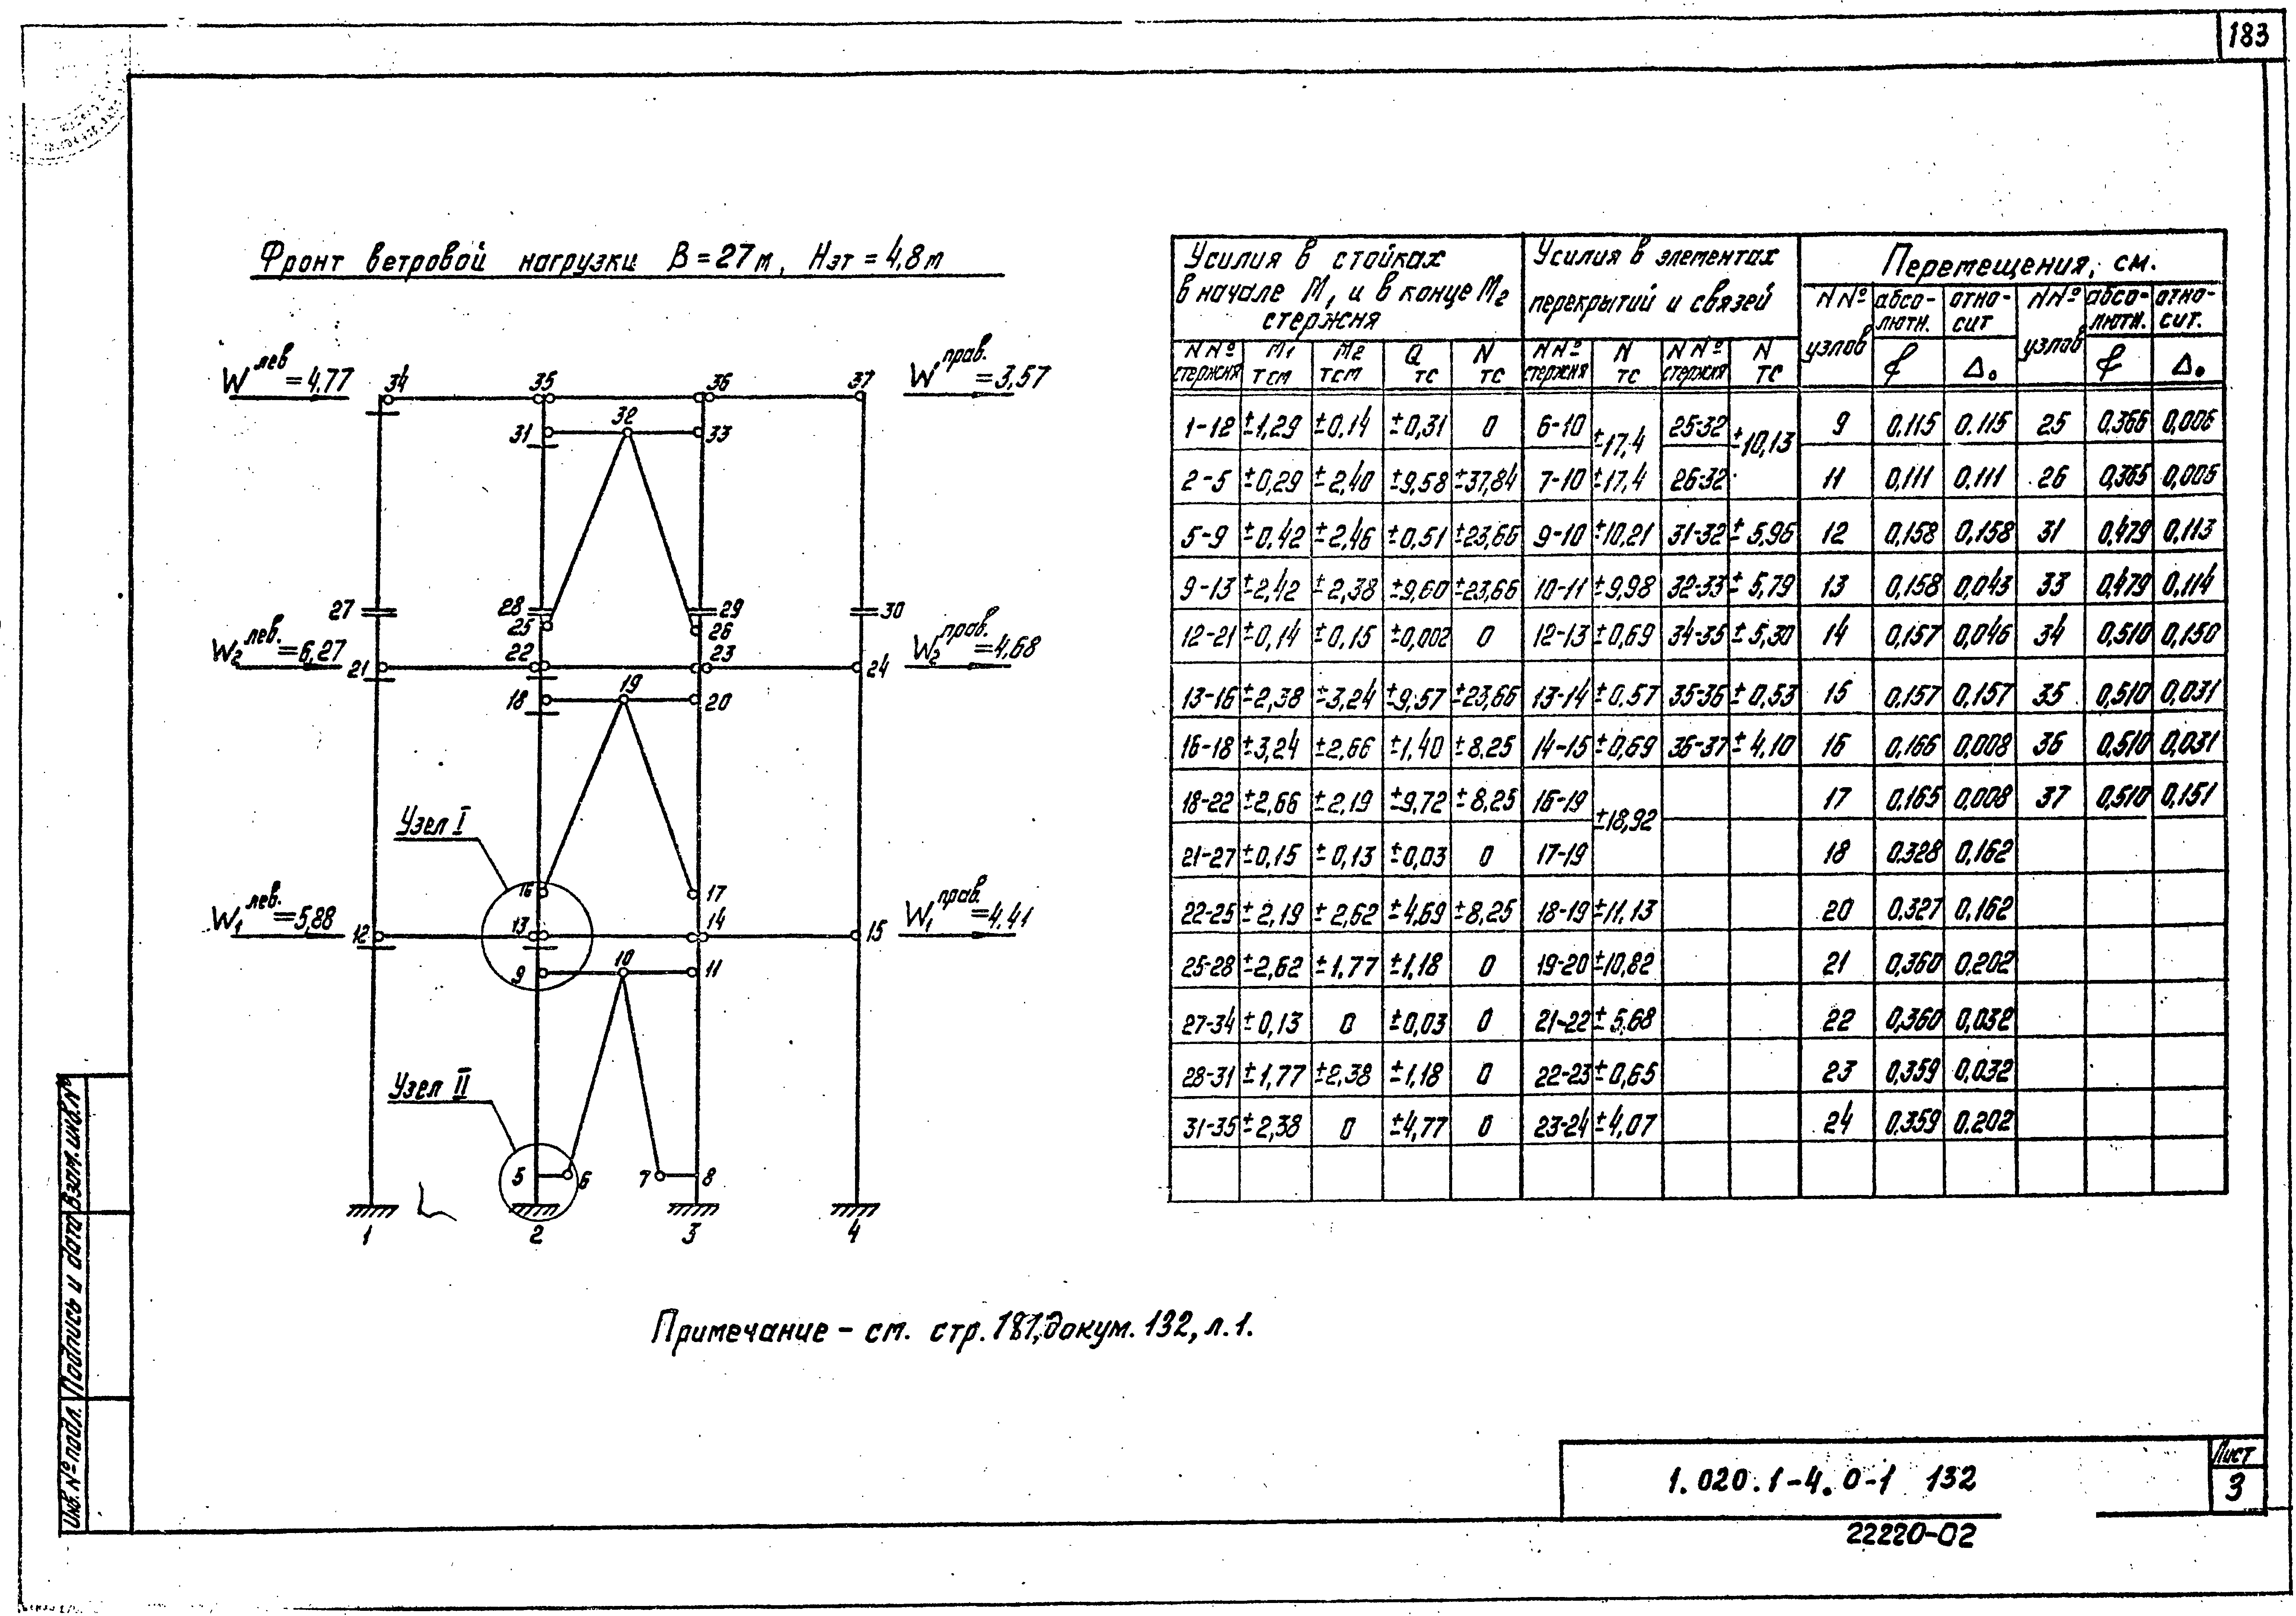 183
Фронт ветровой нагрузки B=27м, Hэт=4,8м
W лев =4,77
34
35
36
37
W прав. =3,57
31
32
33
27
28
29
30
25
26
W2 лев. =6,27
21
22
23
24
W2 прав. =4,68
18
19
20
Узел I
16
17
W1 лев. =5,88
12
13
14
15
W1 прав. =4,41
9
10
11
Узел II
5
6
7
8
1
2
3
4
Усилия в стойках в начале M1 и в конце M2 стержня
Усилия в элементах перекрытий и связей
Перемещения, см.
NNº стержня M1 тсм M2 тсм Q тс N тс NNº стержня N тс NNº стержня N тс NNº узлов абсолютн. f относит Δ0 NNº узлов абсолютн. f относит. Δ0
1-12 ±1,29 ±0,14 ±0,31 0 6-10 ±17,4 25-32 ±10,13 9 0,115 0,115 25 0,366 0,006
2-5 ±0,29 ±2,40 ±9,58 ±37,84 7-10 ±17,4 26-32 11 0,111 0,111 26 0,365 0,006
5-9 ±0,42 ±2,46 ±0,51 ±23,66 9-10 ±10,21 31-32 ±5,96 12 0,158 0,158 31 0,479 0,113
9-13 ±2,42 ±2,38 ±9,60 ±23,66 10-11 ±9,98 32-33 ±5,79 13 0,158 0,043 33 0,479 0,114
12-21 ±0,14 ±0,15 ±0,002 0 12-13 ±0,69 34-35 ±5,30 14 0,157 0,046 34 0,510 0,150
13-16 ±2,38 ±3,24 ±9,57 ±23,66 13-14 ±0,57 35-36 ±0,53 15 0,157 0,157 35 0,510 0,031
16-18 ±3,24 ±2,66 ±1,40 ±8,25 14-15 ±0,69 36-37 ±4,10 16 0,166 0,008 36 0,510 0,031
18-22 ±2,66 ±2,19 ±9,72 ±8,25 16-19 ±18,92 17 0,165 0,008 37 0,510 0,151
21-27 ±0,15 ±0,13 ±0,03 0 17-19 18 0,328 0,162
22-25 ±2,19 ±2,62 ±4,69 ±8,25 18-19 ±11,13 20 0,327 0,162
25-28 ±2,62 ±1,77 ±1,18 0 19-20 ±10,82 21 0,360 0,202
27-34 ±0,13 0 ±0,03 0 21-22 ±5,68 22 0,360 0,032
28-31 ±1,77 ±2,38 ±1,18 0 22-23 ±0,65 23 0,359 0,032
31-35 ±2,38 0 ±4,77 0 23-24 ±4,07 24 0,359 0,202
Примечание - см. стр. 181, докум. 132, л.1.
Инв. Nº подл. Подпись и дата Взам. инв. Nº
1.020.1-4.0-1 132
Лист
3
22220-02